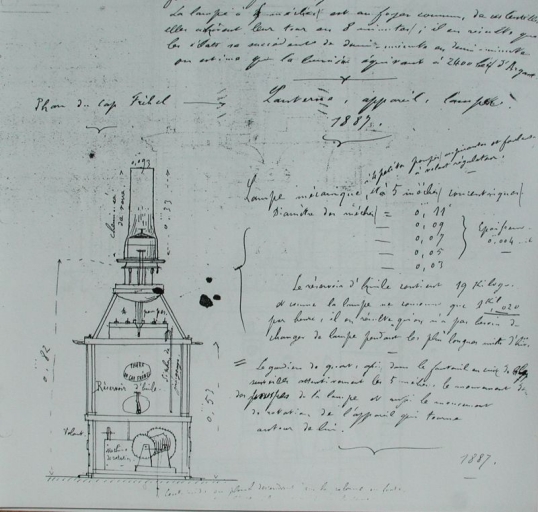 La lampe à 5 mèches est au foyer commun, de ces lentilles
elles achèvent leur tour en 8 minutes; il en résulte que
les éclats se succèdent de demi-minute en demi-minute
on estime que la lumière équivaut à 2400 becs d'Argant
Phare du cap Fréhel
Lanterne, appareil, lampe.
1887.
4 petites pompes aspirantes et foulantes
à volant régulateur.
Lampe mécanique, à 5 mèches concentriques
Diamètre des mèches = 0,11
0,09
0,07
0,05
0,03
Epaisseur
0.004
0,093
cheminée
de verre
0,33
Le réservoir d'huile contient 19 Kilogs.
et comme la lampe ne consume que 1 Kil ,020
par heure, il en résulte qu'on n'a pas besoin de
changer de lampe pendant les plus longues nuits d'hiver.
= Le gardien de quart, assis dans le fauteuil en cuir
surveille attentivement les 5 mèches, le mouvement
des pompes de la lampe et aussi le mouvement
de rotation de l'appareil qui tourne
autour de lui.
0,82
pompes
Réservoir d'huile
0,53
Volant
Machine
de rotation
1887.